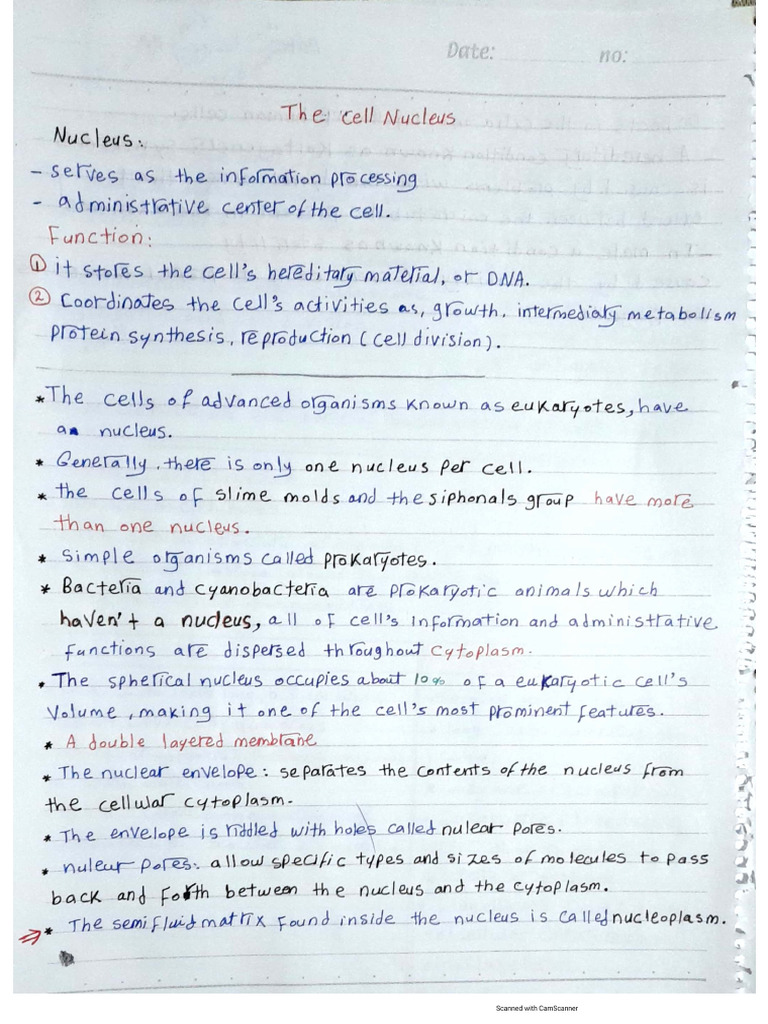 Date: no:
The Cell Nucleus
Nucleus:
- serves as the information processing
- administrative center of the cell.
Function:
① it stores the cell's hereditary material, or DNA.
② Coordinates the cell's activities as, growth, intermediary metabolism
protein synthesis, reproduction (cell division).
* The cells of advanced organisms known as eukaryotes, have
a nucleus.
* Generally, there is only one nucleus per cell.
* the cells of slime molds and the siphonals group have more
than one nucleus.
* simple organisms called prokaryotes.
* Bacteria and cyanobacteria are prokaryotic animals which
haven't a nucleus, all of cell's information and administrative
functions are dispersed throughout cytoplasm.
• The spherical nucleus occupies about 10% of a eukaryotic cell's
Volume, making it one of the cell's most prominent features.
* A double layered membrane
* The nuclear envelope: separates the contents of the nucleus from
the cellular cytoplasm.
* The envelope is riddled with holes called nulear pores.
* nulear pores: allow specific types and sizes of molecules to pass
back and forth between the nucleus and the cytoplasm.
⇒ * The semifluid matrix found inside the nucleus is called nucleoplasm.
Scanned with CamScanner